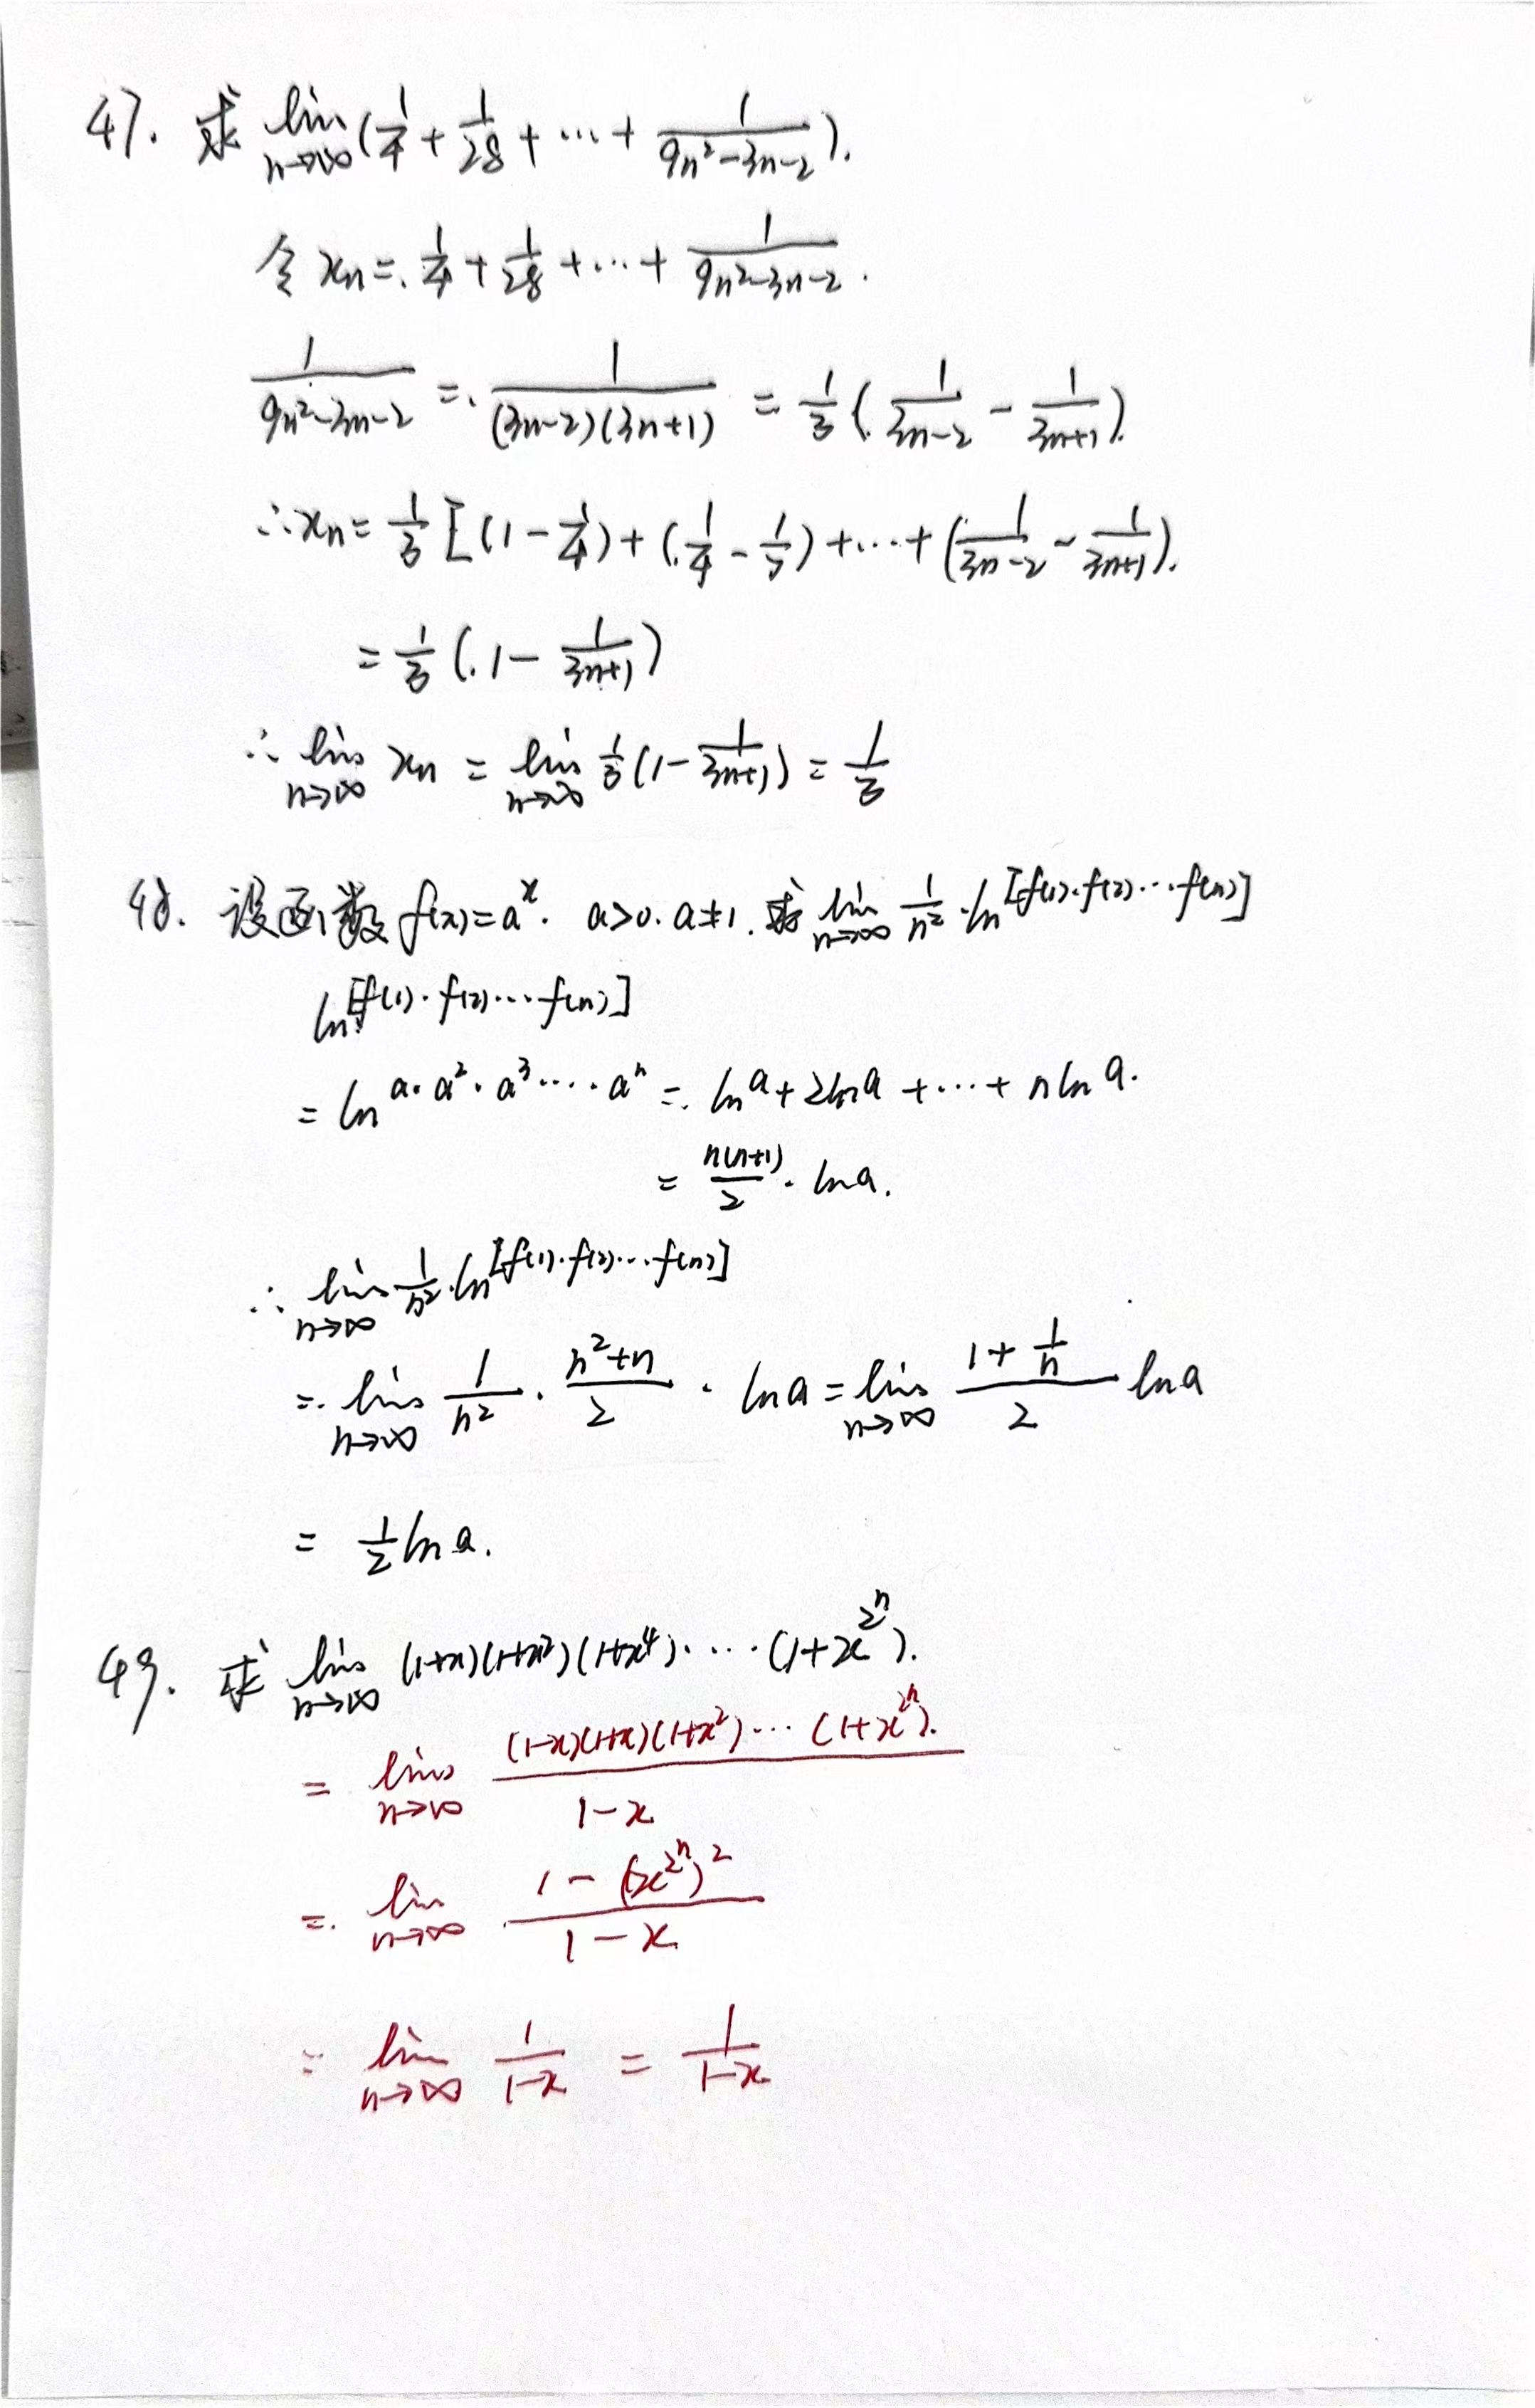 47. 求 lim n→∞ (1/4 + 1/28 + ··· + 1/(9n²-3n-2)).
令 xn = 1/4 + 1/28 + ··· + 1/(9n²-3n-2).
1/(9n²-3n-2) = 1/((3n-2)(3n+1)) = 1/3 (1/(3n-2) - 1/(3n+1)).
∴ xn = 1/3 [(1 - 1/4) + (1/4 - 1/7) + ··· + (1/(3n-2) - 1/(3n+1)).
= 1/3 (1 - 1/(3n+1))
∴ lim n→∞ xn = lim n→∞ 1/3 (1 - 1/(3n+1)) = 1/3
48. 设函数 f(x) = a^x. a>0. a≠1. 求 lim n→∞ 1/n² · ln [f(1)·f(2)···f(n)]
ln [f(1)·f(2)···f(n)]
= ln a·a²·a³····a^n = ln a + 2ln a + ··· + n ln a.
= n(n+1)/2 · ln a.
∴ lim n→∞ 1/n² · ln [f(1)·f(2)···f(n)]
= lim n→∞ 1/n² · (n²+n)/2 · ln a = lim n→∞ (1 + 1/n)/2 ln a
= 1/2 ln a.
49. 求 lim n→∞ (1+x)(1+x²)(1+x⁴)····(1+x^2^n).
= lim n→∞ (1-x)(1+x)(1+x²)···(1+x^2^n). / (1-x)
= lim n→∞ (1 - (x^2^n)²)/(1-x)
= lim n→∞ 1/(1-x) = 1/(1-x)